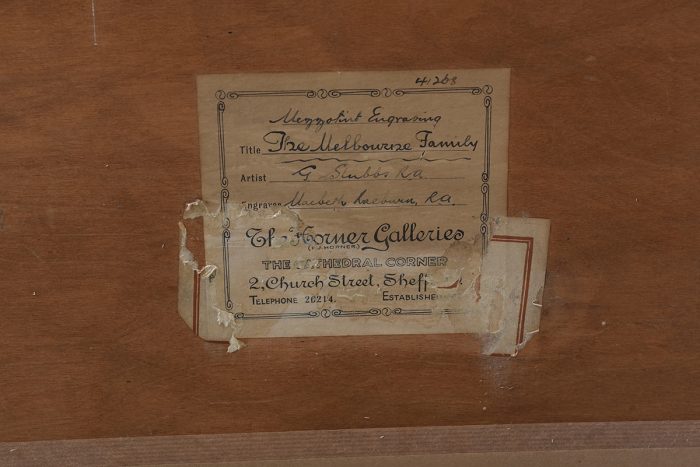 41268
Mezzotint Engraving
Title The Melbourne Family
Artist G. Stubbs R.A.
Engraver Macbeth Raeburn, R.A.
The Horner Galleries
(F.J. HORNER)
THE CATHEDRAL CORNER
2, Church Street, Sheff
TELEPHONE 26214. ESTABLISHED